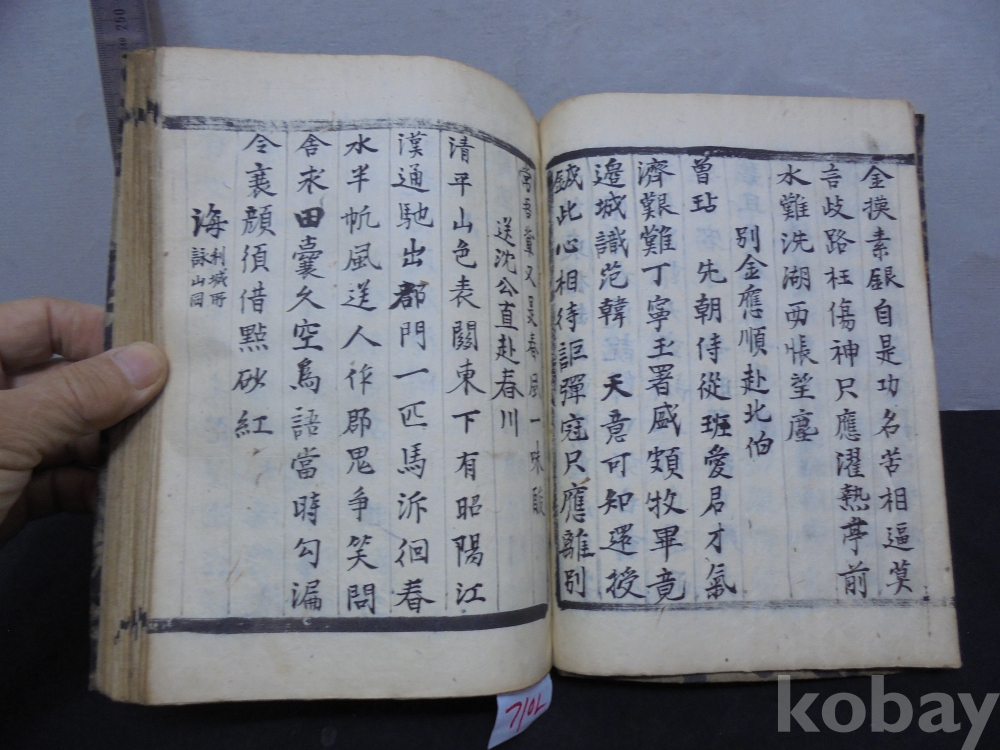 金摸素銀自是功名苦相逼莫
言歧路枉傷神只應濯熱亭前
水難洗湖西悵望塵
別金應順赴北伯
曾玷先朝侍從班愛君才氣
濟艱難丁寧玉署盛頗牧畢竟
邉城識范韓天意可知還授
鉞此心相待詎彈冠只應離別
又是春風一味
送沈公直赴春川
清平山色表關東下有昭陽江
漢通馳出都門一匹馬泝徊春
水半帆風送人作郡思爭笑問
舍求田囊久空為語當時勾漏
令衰顔須借點砂紅
海利城所
詠山同
250
기아
kobay